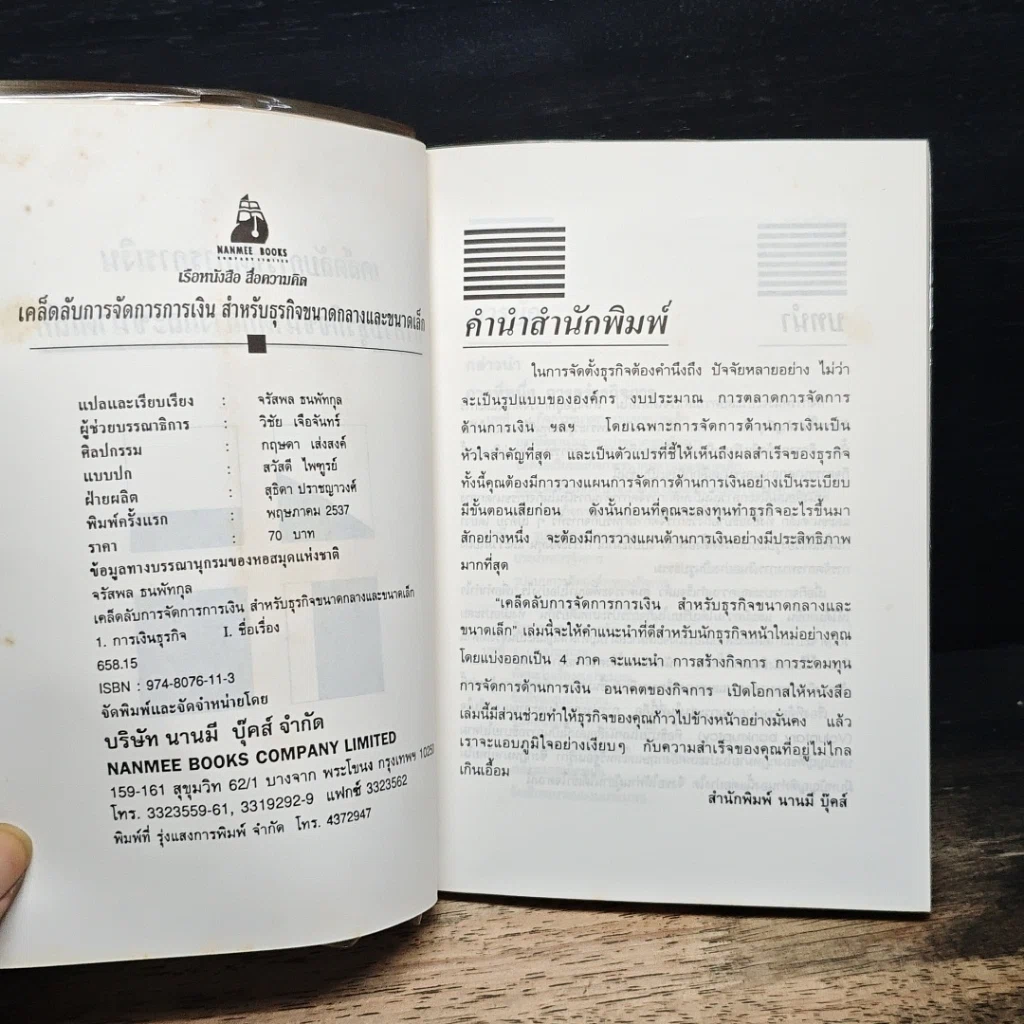 NANMEE BOOKS
COMPANY LIMITED
เรือหนังสือ สื่อความคิด
เคล็ดลับการจัดการการเงิน สำหรับธุรกิจขนาดกลางและขนาดเล็ก
แปลและเรียบเรียง : จรัสพล ธนพัทกุล
ผู้ช่วยบรรณาธิการ : วิชัย เจือจันทร์
ศิลปกรรม : กฤษดา เส่งสงค์
แบบปก : สวัสดี ไพฑูรย์
ฝ่ายผลิต : สุธิดา ปราชญาวงศ์
พิมพ์ครั้งแรก : พฤษภาคม 2537
ราคา : 70 บาท
ข้อมูลทางบรรณานุกรมของหอสมุดแห่งชาติ
จรัสพล ธนพัทกุล
เคล็ดลับการจัดการการเงิน สำหรับธุรกิจขนาดกลางและขนาดเล็ก
1. การเงินธุรกิจ I. ชื่อเรื่อง
658.15
ISBN : 974-8076-11-3
จัดพิมพ์และจัดจำหน่ายโดย
บริษัท นานมี บุ๊คส์ จำกัด
NANMEE BOOKS COMPANY LIMITED
159-161 สุขุมวิท 62/1 บางจาก พระโขนง กรุงเทพฯ 10250
โทร. 3323559-61, 3319292-9 แฟกซ์ 3323562
พิมพ์ที่ รุ่งแสงการพิมพ์ จำกัด โทร. 4372947
คำนำสำนักพิมพ์
ในการจัดตั้งธุรกิจต้องคำนึงถึง ปัจจัยหลายอย่าง ไม่ว่า
จะเป็นรูปแบบขององค์กร งบประมาณ การตลาดการจัดการ
ด้านการเงิน ฯลฯ โดยเฉพาะการจัดการด้านการเงินเป็น
หัวใจสำคัญที่สุด และเป็นตัวแปรที่ชี้ให้เห็นถึงผลสำเร็จของธุรกิจ
ทั้งนี้คุณต้องมีการวางแผนการจัดการด้านการเงินอย่างเป็นระเบียบ
มีขั้นตอนเสียก่อน ดังนั้นก่อนที่คุณจะลงทุนทำธุรกิจอะไรขึ้นมา
สักอย่างหนึ่ง จะต้องมีการวางแผนด้านการเงินอย่างมีประสิทธิภาพ
มากที่สุด
"เคล็ดลับการจัดการการเงิน สำหรับธุรกิจขนาดกลางและ
ขนาดเล็ก" เล่มนี้จะให้คำแนะนำที่ดีสำหรับนักธุรกิจหน้าใหม่อย่างคุณ
โดยแบ่งออกเป็น 4 ภาค จะแนะนำ การสร้างกิจการ การระดมทุน
การจัดการด้านการเงิน อนาคตของกิจการ เปิดโอกาสให้หนังสือ
เล่มนี้มีส่วนช่วยทำให้ธุรกิจของคุณก้าวไปข้างหน้าอย่างมั่นคง แล้ว
เราจะแอบภูมิใจอย่างเงียบๆ กับความสำเร็จของคุณที่อยู่ไม่ไกล
เกินเอื้อม
สำนักพิมพ์ นานมี บุ๊คส์